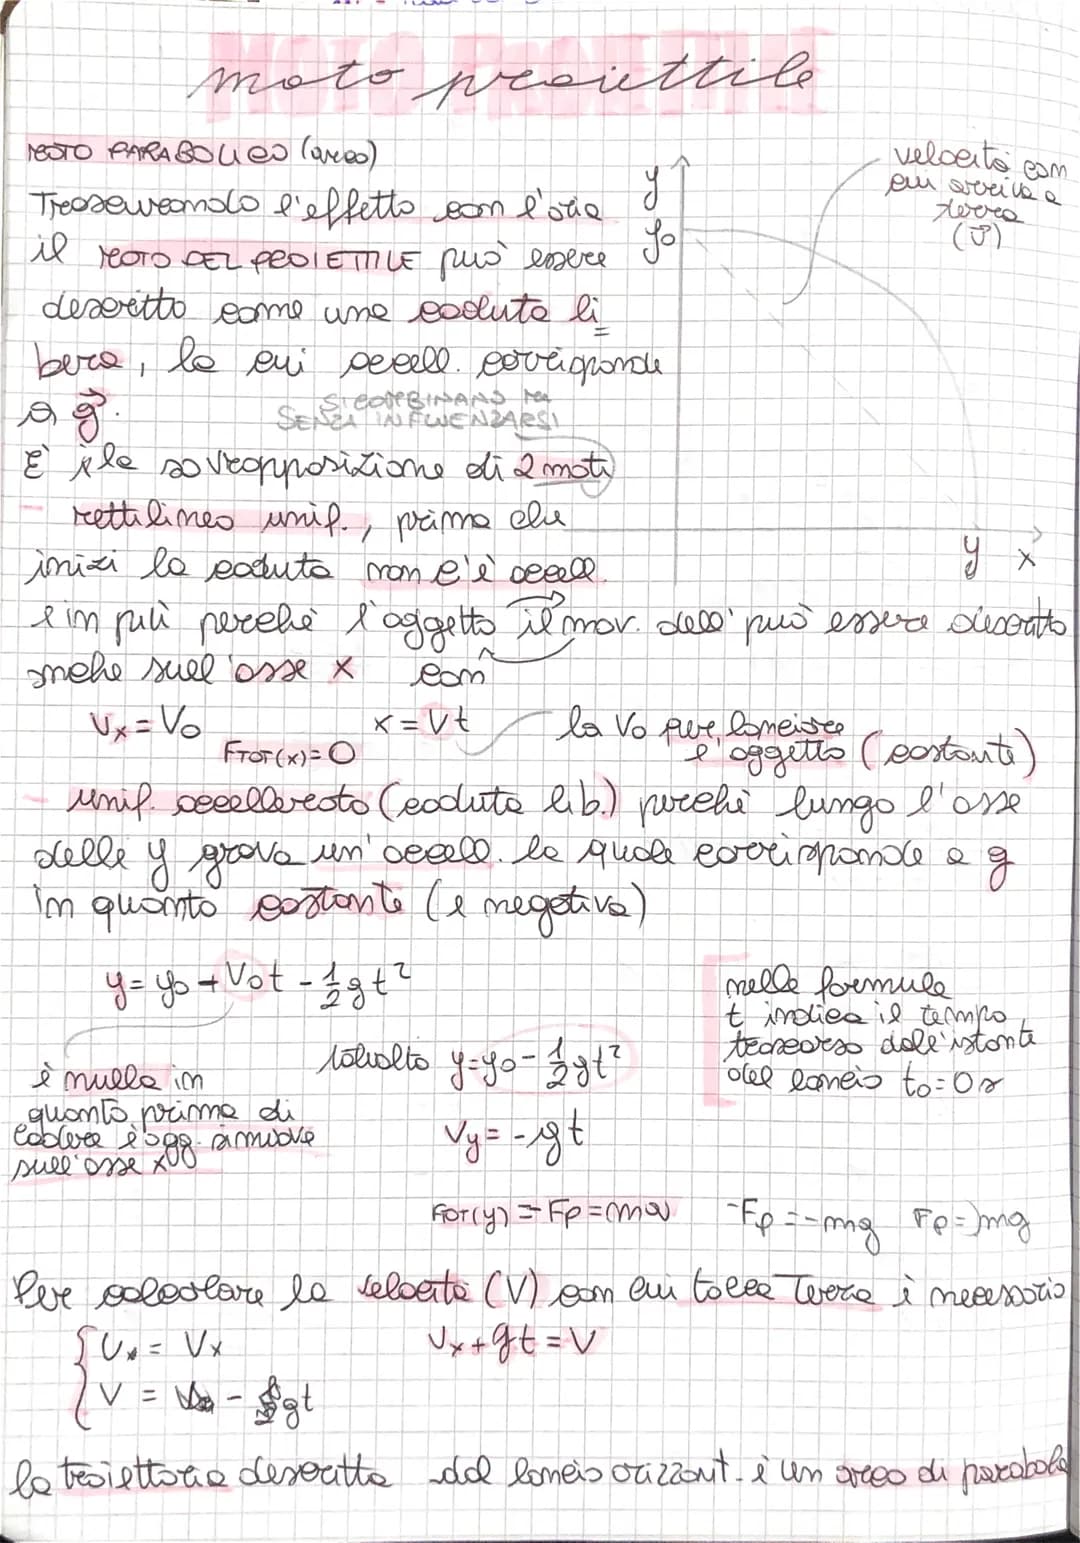 moto proiettile
MOTO PARABOLICO (arco)
Trascurando l'effetto con l'aria
il MOTO DEL PROIETTILE può essere
descritto come una caduta li
bera, la cui accell. corrisponde
a g⃗.
SI COMBINANO MA
SENZA INFLUENZARSI
È la sovrapposizione di 2 moti
- rettilineo unif., prima che
inizi la caduta non c'è accell.
e in più perché l'oggetto il mov. dell' può essere descritto
anche sull'asse x con
y
y₀
velocità con
cui arriva a
terra
(v⃗)
y x
Vx = V₀
x = Vt
FTOT(x) = 0
la V₀ per lanciare
l'oggetto (costante)
- unif. accellerato (caduta lib.) perché lungo l'asse
delle y grava un'accell. la quale corrisponde a g
in quanto costante (e negativa)
y = y₀ + V₀t - ½gt²
è nulla in
quanto prima di
cadere l'ogg. si muove
sull'asse x
y = y₀ - ½gt²
Vy = -gt
nelle formule
t indica il tempo
trascorso dall'istante
del lancio t₀ = 0 s
FTOT(y) = -Fp = ma -Fp = -mg Fp = mg
Per calcolare la velocità (V) con cui tocca Terra è necessario
Vx = Vx
Vx + gt = V
V = - gt
la traiettoria descritta dal lancio orizzont. è un arco di parabola